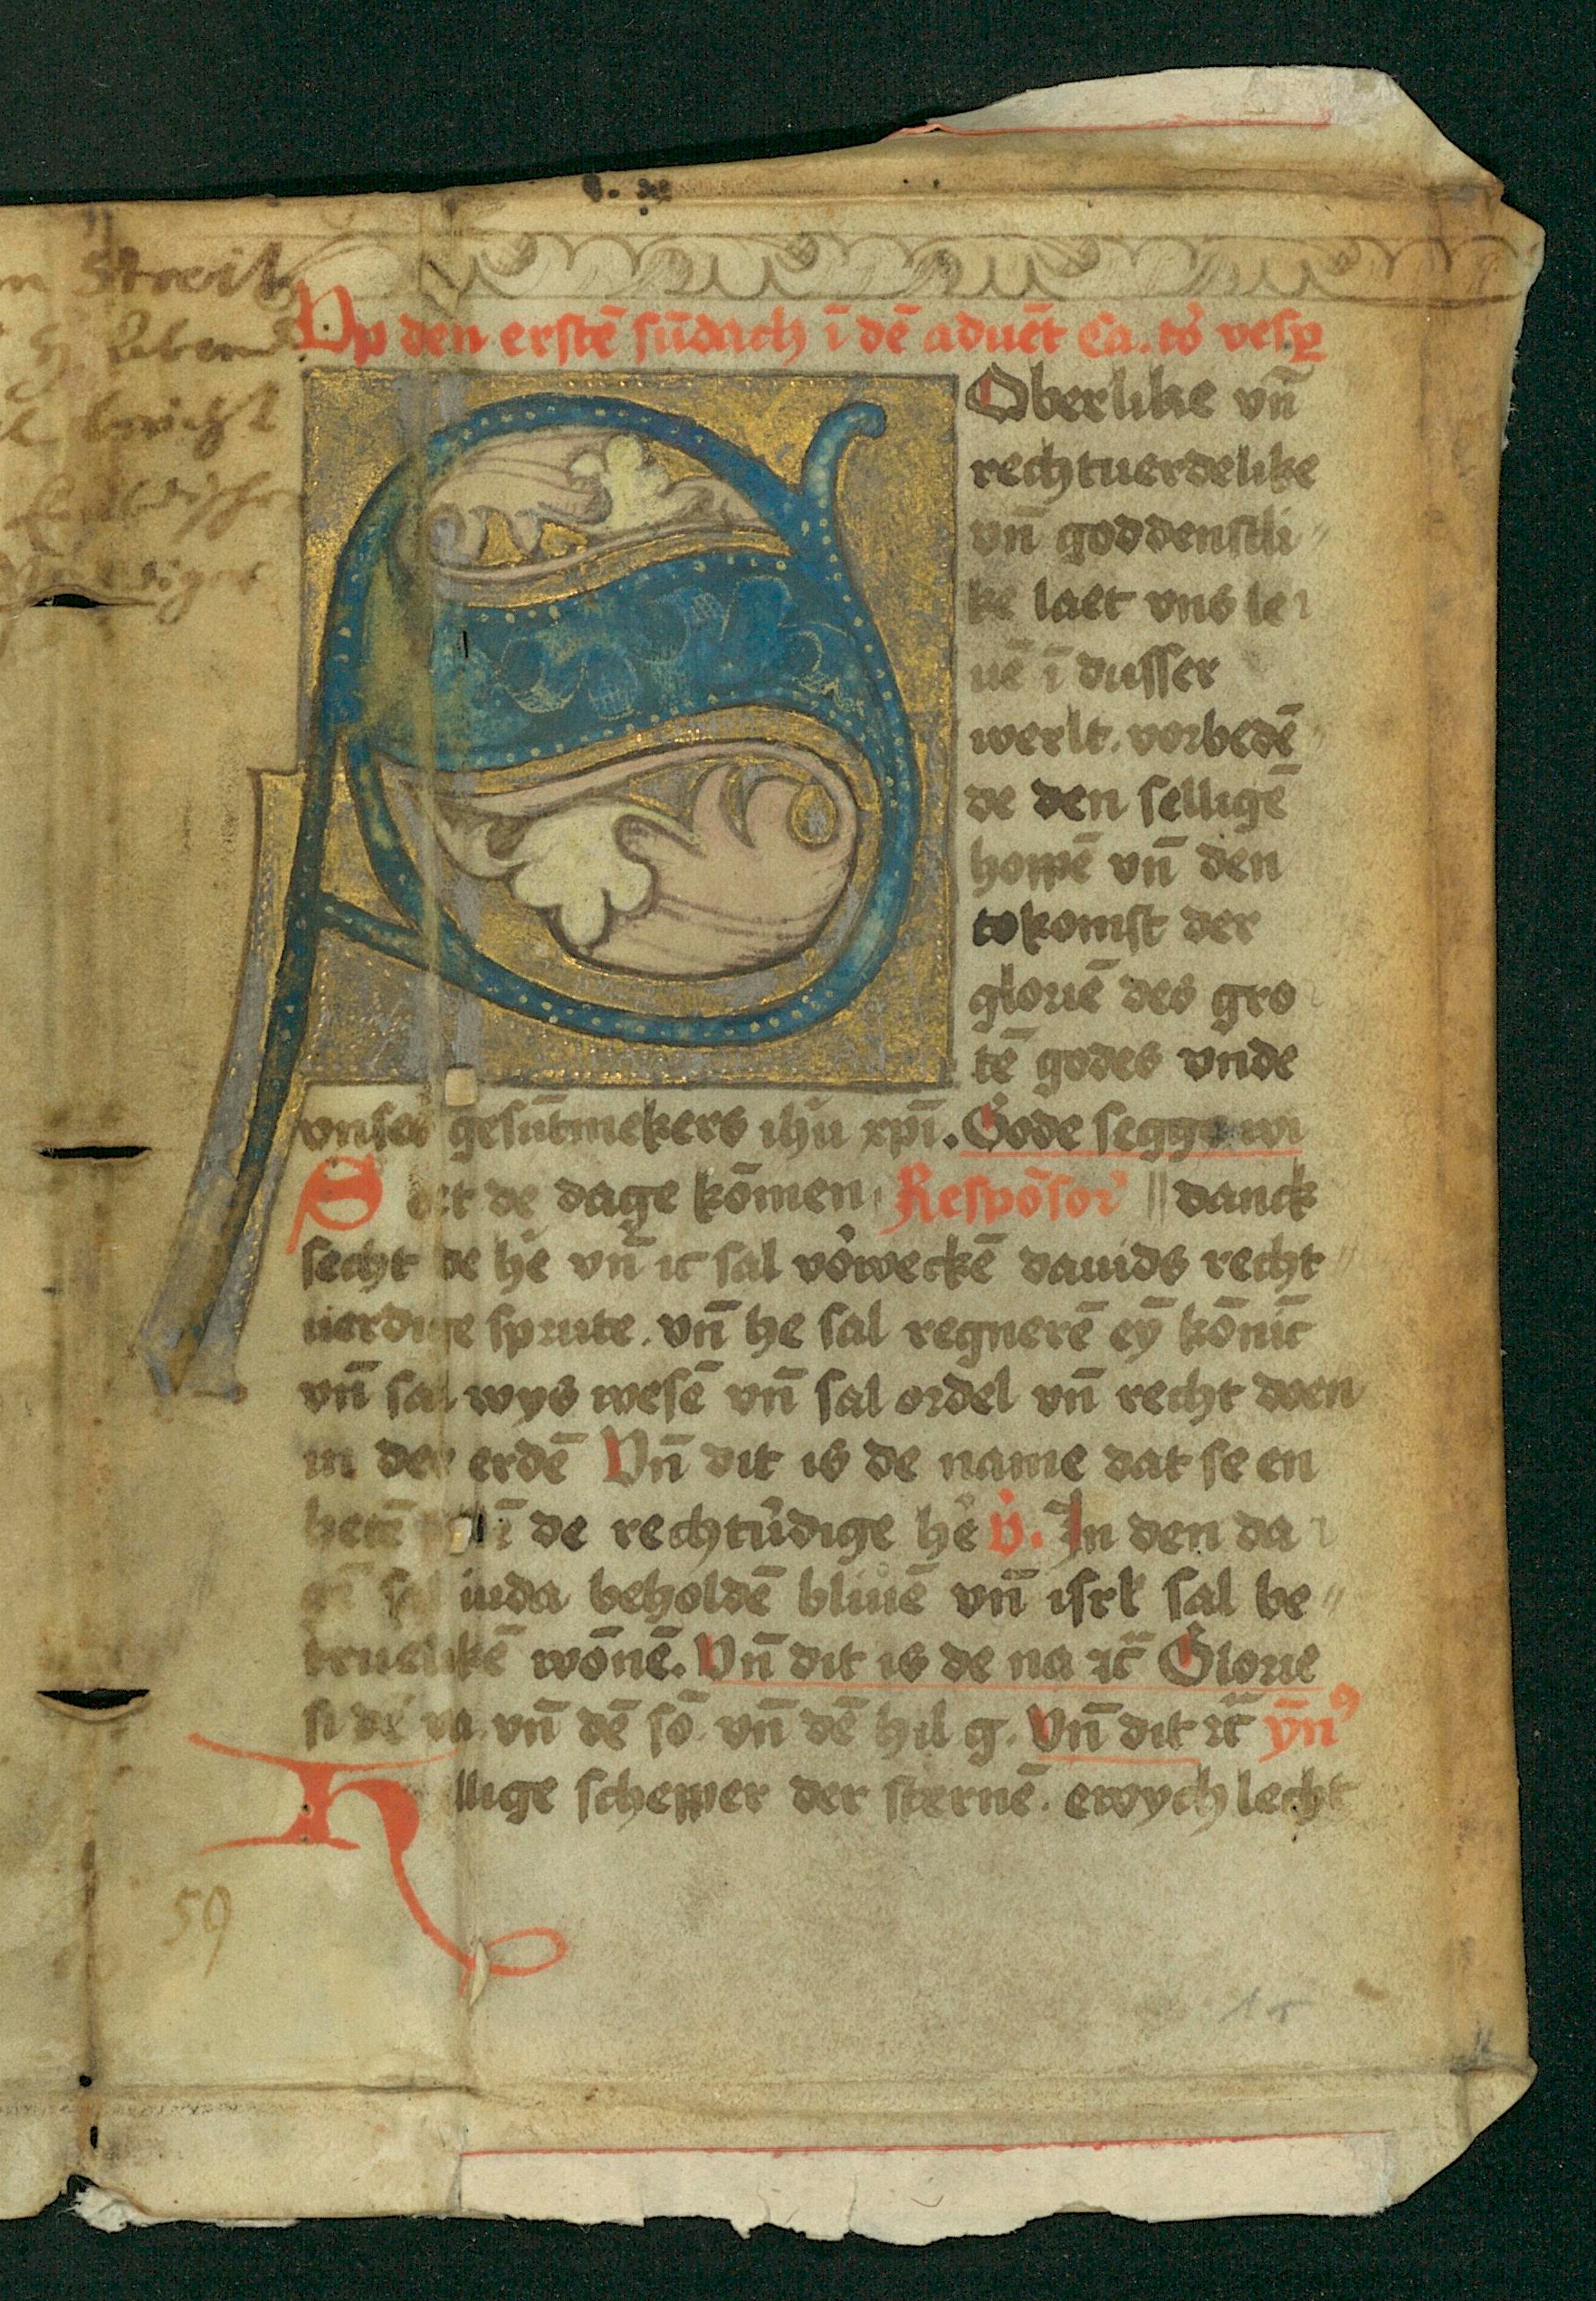 Vp den erstē sūdach ī dē aduēt Ca. to vesp
Oberlike vn̄
rechtuerdelike
vn̄ goddenstli〃
ke laet vns le
uē ī dusser
werlt. vorbedē
de den selligē
hoppē vn̄ den
tokomst der
gloriē des gro
tē godes vnde
vnses gesūtmekers ihū xpī. Gode segge wi
Set de dage kōmen Respōsor || danck
secht de he vn̄ ic sal vorweckē dauids recht〃
uerdige sprute. vn̄ he sal regnerē ey̅ kōnīc
vn̄ sal wys wesē vn̄ sal ordel vn̄ recht doen
in der erdē Vn̄ dit is de name dat se en
hetē de rechtu̓dige he v. In den da
gē sal iuda beholdē bliuē vn̄ isrl sal be〃
truelikē wōnē. Vn̄ dit is de na ꝛc̄ Glorie
si dē va vn̄ dē sō vn̄ dē hil g. Vn̄ dit ꝛc̄ ȳn9
Hillige schepper der sternē. ewych lecht
59